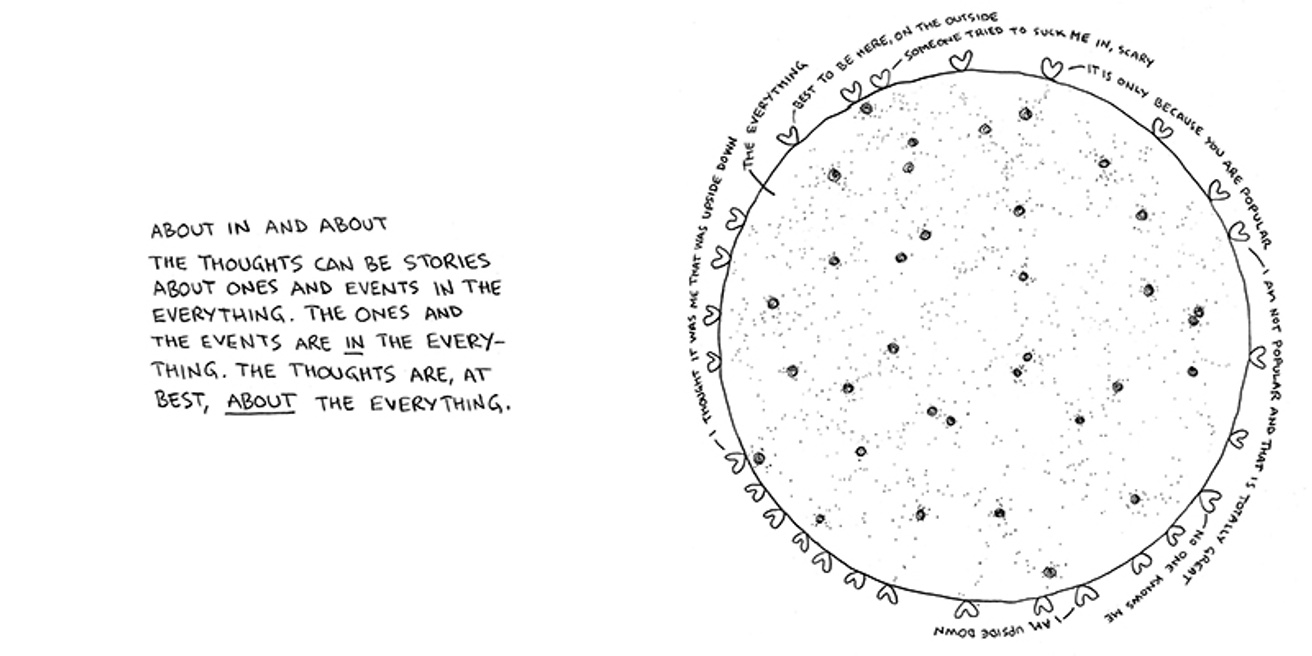 ABOUT IN AND ABOUT
THE THOUGHTS CAN BE STORIES
ABOUT ONES AND EVENTS IN THE
EVERYTHING. THE ONES AND
THE EVENTS ARE IN THE EVERY-
THING. THE THOUGHTS ARE, AT
BEST, ABOUT THE EVERYTHING.
I THOUGHT IT WAS ME THAT WAS UPSIDE DOWN
THE EVERYTHING
BEST TO BE HERE, ON THE OUTSIDE
SOMEONE TRIED TO SUCK ME IN, SCARY
IT IS ONLY BECAUSE YOU ARE POPULAR
I AM NOT POPULAR AND THAT IS TOTALLY GREAT
NO ONE KNOWS ME
I AM UPSIDE DOWN